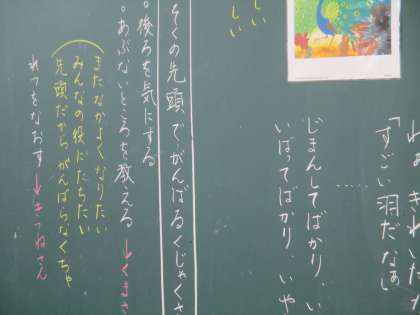 「すごい羽だなあ
じまんしてばかり、い
いばってばかり、いや
しい
しい
ぞくの先頭で、がんばるくじゃくさ
。後ろを気にする
。あぶないところを教える→くまさ
またなかよくなりたい
みんなの役にたちたい
先頭だからがんばらなくちゃ
れつをなおす→きつねさん